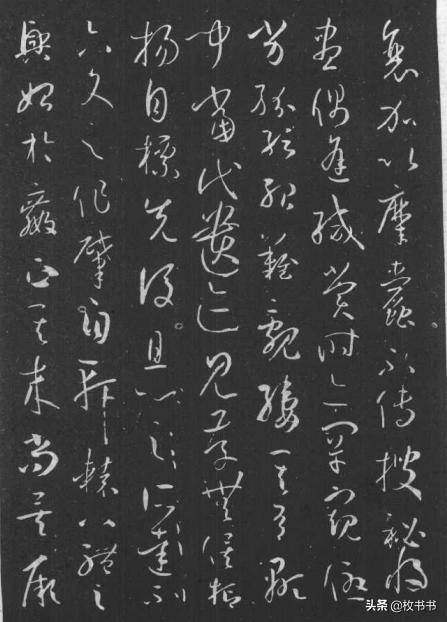 衰加以糜蠹不傳搜秘將
盡偶逢緘賞時亦罕窺優
劣紛紜殆難覼縷其有顯
聞當代遺迹見存無俟抑
揚自標先後且心之所達不
六文之作肇自軒轅八體之
興始於嬴正其來尚矣厥
头条 @枚书书